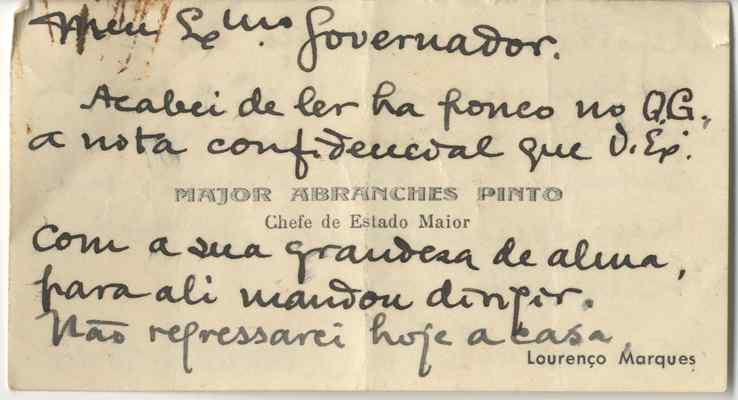 Meu Ex.mo Governador.
Acabei de ler ha pouco no Q.G.,
a nota confidencial que V. Ex.
MAJOR ABRANCHES PINTO
Chefe de Estado Maior
com a sua grandesa de alma,
para ali mandou dirigir.
Não regressarei hoje a casa,
Lourenço Marques